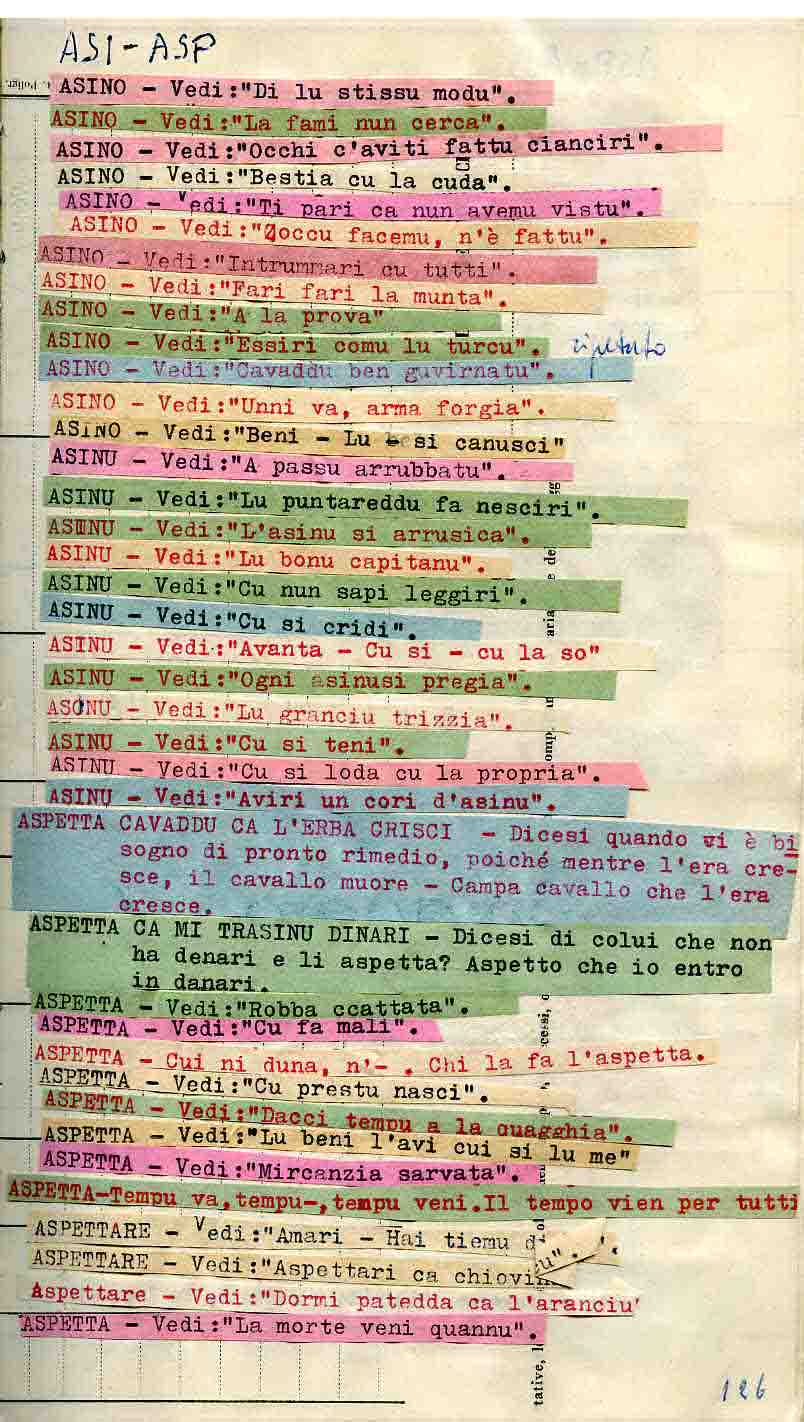 ASI-ASP
ASINO - Vedi:"Di lu stissu modu".
ASINO - Vedi:"La fami nun cerca".
ASINO - Vedi:"Occhi c'aviti fattu cianciri".
ASINO - Vedi:"Bestia cu la cuda".
ASINO - Vedi:"Ti pari ca nun avemu vistu".
ASINO - Vedi:"Zoccu facemu, n'è fattu".
ASINO - Vedi:"Intrummari cu tutti".
ASINO - Vedi:"Fari fari la munta".
ASINO - Vedi:"A la prova"
ASINO - Vedi:"Essiri comu lu turcu". ripetuto
ASINO - Vedi:"Cavaddu ben guvirnatu".
ASINO - Vedi:"Unni va, arma forgia".
ASINO - Vedi:"Beni - Lu si canusci"
ASINU - Vedi:"A passu arrubbatu".
ASINU - Vedi:"Lu puntareddu fa nesciri".
ASINU - Vedi:"L'asinu si arrusica".
ASINU - Vedi:"Lu bonu capitanu".
ASINU - Vedi:"Cu nun sapi leggiri".
ASINU - Vedi:"Cu si cridi".
ASINU - Vedi:"Avanta - Cu si - cu la so"
ASINU - Vedi:"Ogni asinusi pregia".
ASINU - Vedi:"Lu granciu trizzia".
ASINU - Vedi:"Cu si teni".
ASINU - Vedi:"Cu si loda cu la propria".
ASINU - Vedi:"Aviri un cori d'asinu".
ASPETTA CAVADDU CA L'ERBA CRISCI - Dicesi quando vi è bi
sogno di pronto rimedio, poiché mentre l'era cre-
sce, il cavallo muore - Campa cavallo che l'era
cresce.
ASPETTA CA MI TRASINU DINARI - Dicesi di colui che non
ha denari e li aspetta? Aspetto che io entro
in danari.
ASPETTA - Vedi:"Robba ccattata".
ASPETTA - Vedi:"Cu fa mali".
ASPETTA - Cui ni duna, n'- . Chi la fa l'aspetta.
ASPETTA - Vedi:"Cu prestu nasci".
ASPETTA - Vedi:"Dacci tempu a la quagghia".
ASPETTA - Vedi:"Lu beni l'avi cui si lu me"
ASPETTA - Vedi:"Mircanzia sarvata".
ASPETTA-Tempu va,tempu-,tempu veni.Il tempo vien per tutti
ASPETTARE - Vedi:"Amari - Hai tiemu
ASPETTARE - Vedi:"Aspettari ca
Aspettare - Vedi:"Dormi patedda ca l'aranciu'
ASPETTA - Vedi:"La morte veni quannu".
126